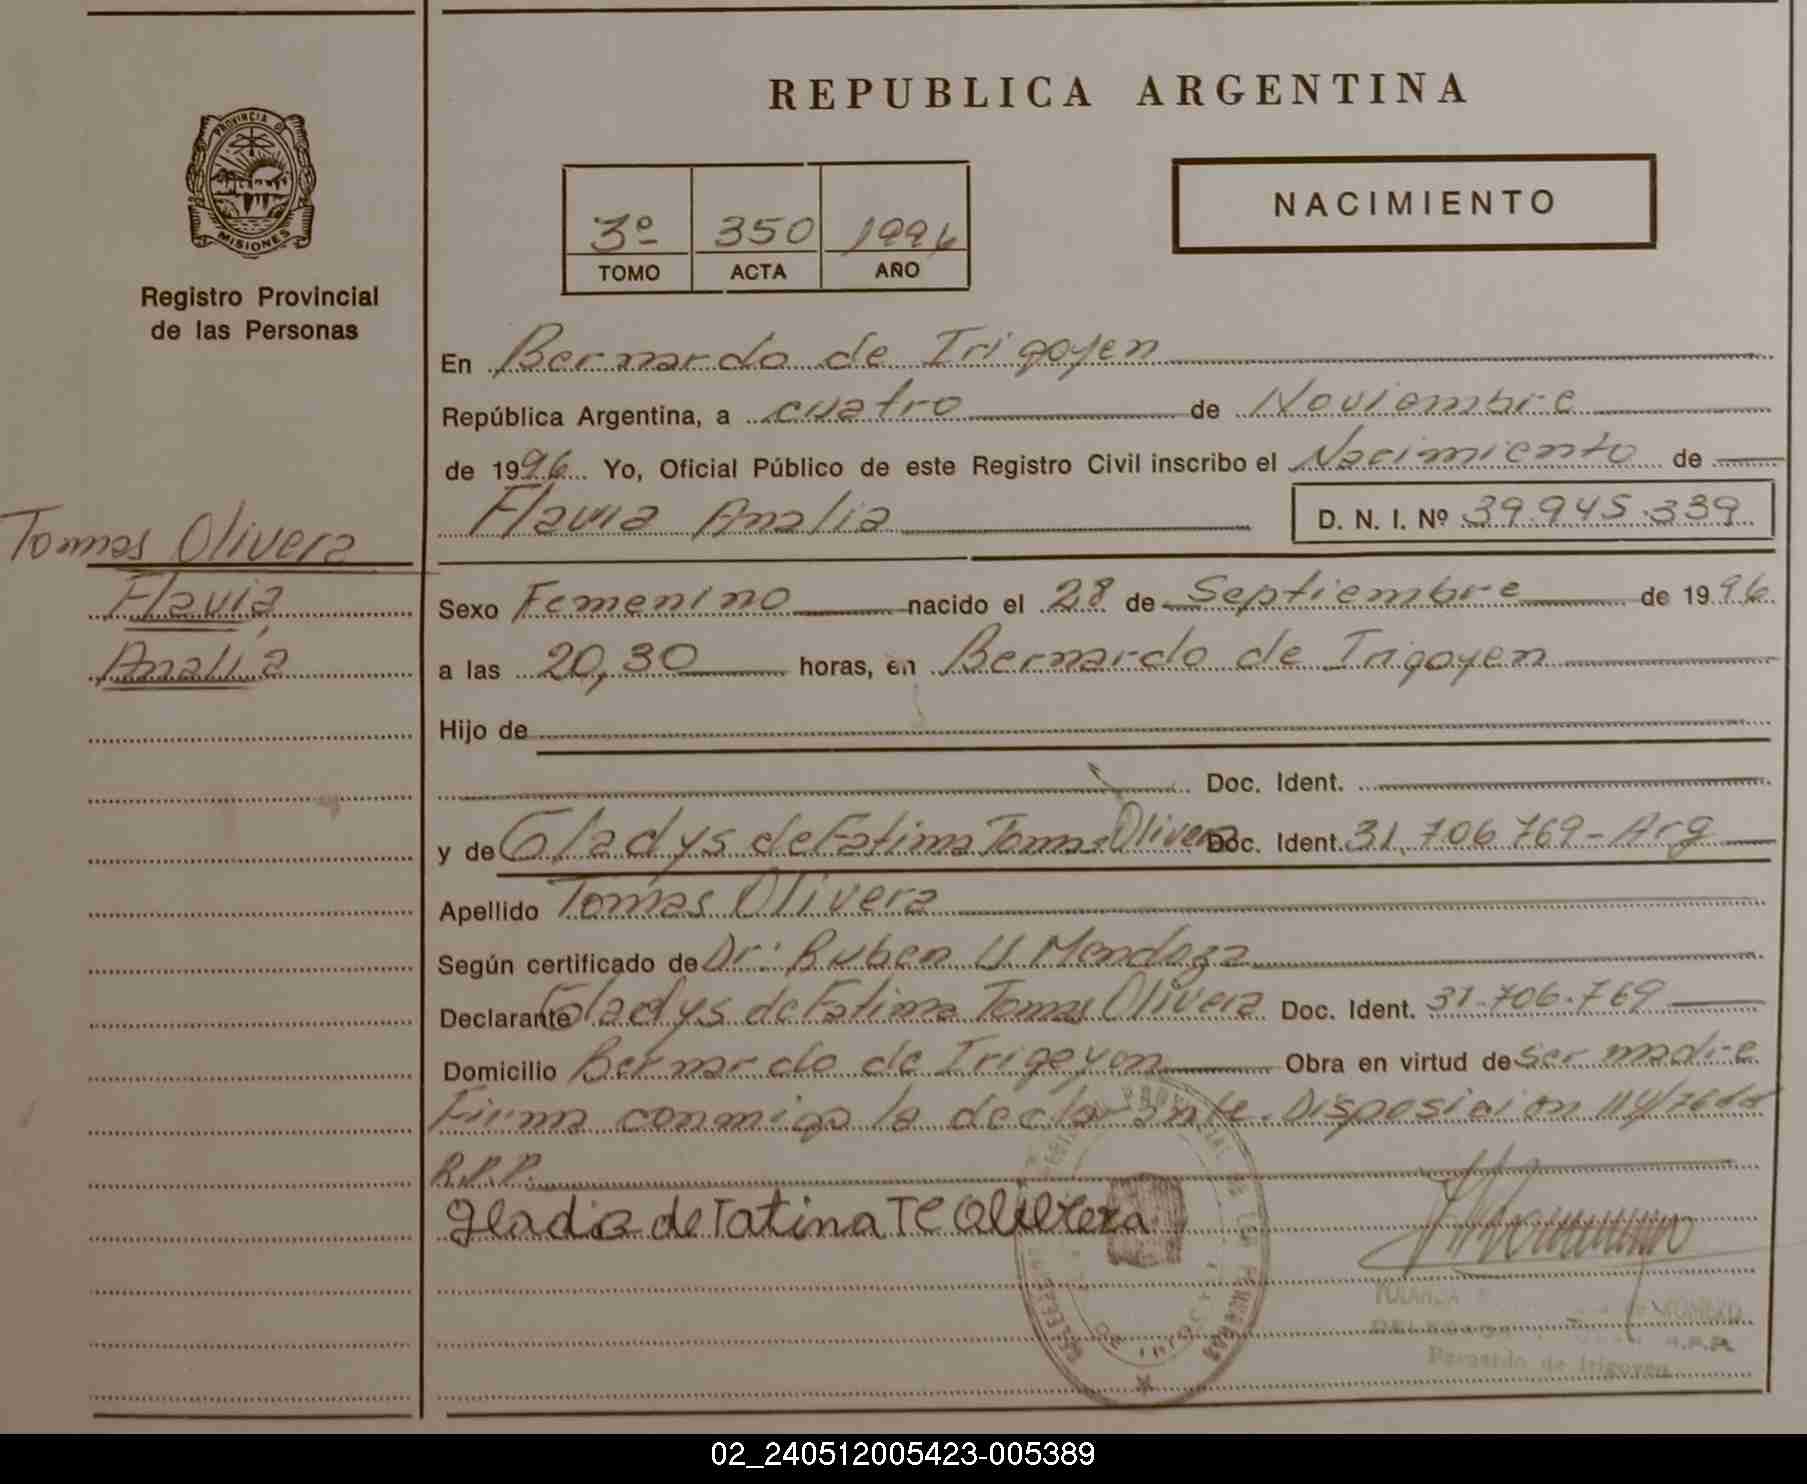 REPUBLICA ARGENTINA
PROVINCIA DE
MISIONES
Registro Provincial
de las Personas
3º 350 1996
TOMO ACTA AÑO
NACIMIENTO
En Bernardo de Irigoyen
República Argentina, a cuatro de Noviembre
de 1996 Yo, Oficial Público de este Registro Civil inscribo el Nacimiento de
Flavia Analia D. N. I. Nº 39.945.339
Tomas Olivera
Flavia
Analia
Sexo Femenino nacido el 28 de Septiembre de 1996
a las 20,30 horas, en Bernardo de Irigoyen
Hijo de
Doc. Ident.
y de Gladys de Fatima Tomas Olivera Doc. Ident. 31.706769-Arg
Apellido Tomas Olivera
Según certificado de Dr: Ruben U Mendoza
Declarante Gladys de Fatima Tomas Olivera Doc. Ident. 31.706.769
Domicilio Bernardo de Irigoyen Obra en virtud de ser madre
Firma conmigo la declarante. Disposicion
R.P.P.
gladis de Tatina TC Olibera
Bernardo de Irigoyen
02_240512005423-005389